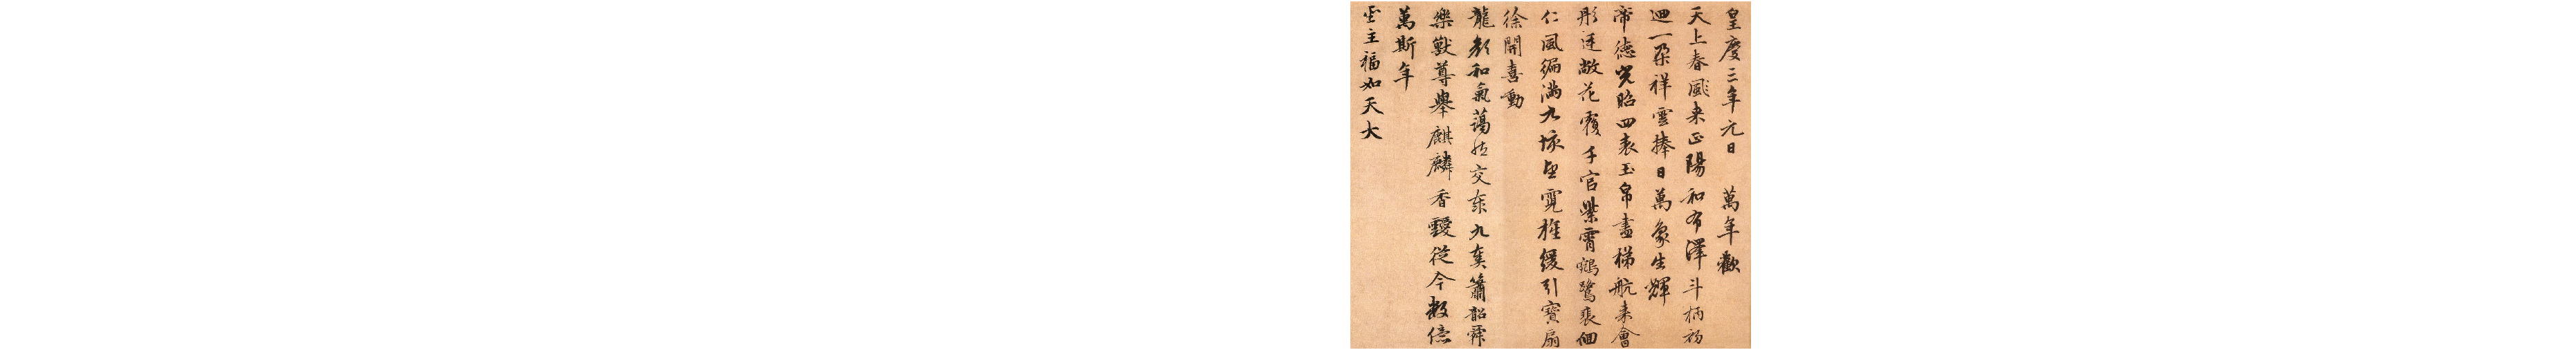 皇慶三年元日 萬年歡
天上春風来正陽和布澤斗柄初
迴一朶祥雲捧日萬象生輝
帝德光昭四表玉帛盡梯航来會
彤廷敞花覆千官紫霄鵷鷺裴佪
仁風徧滿九垓望霓旌緩引寶扇
徐開喜動
龍顔和氣藹然交泰九奏簫韶舜
樂獸尊舉麒麟香靉從今數億
萬斯年
聖主福如天大